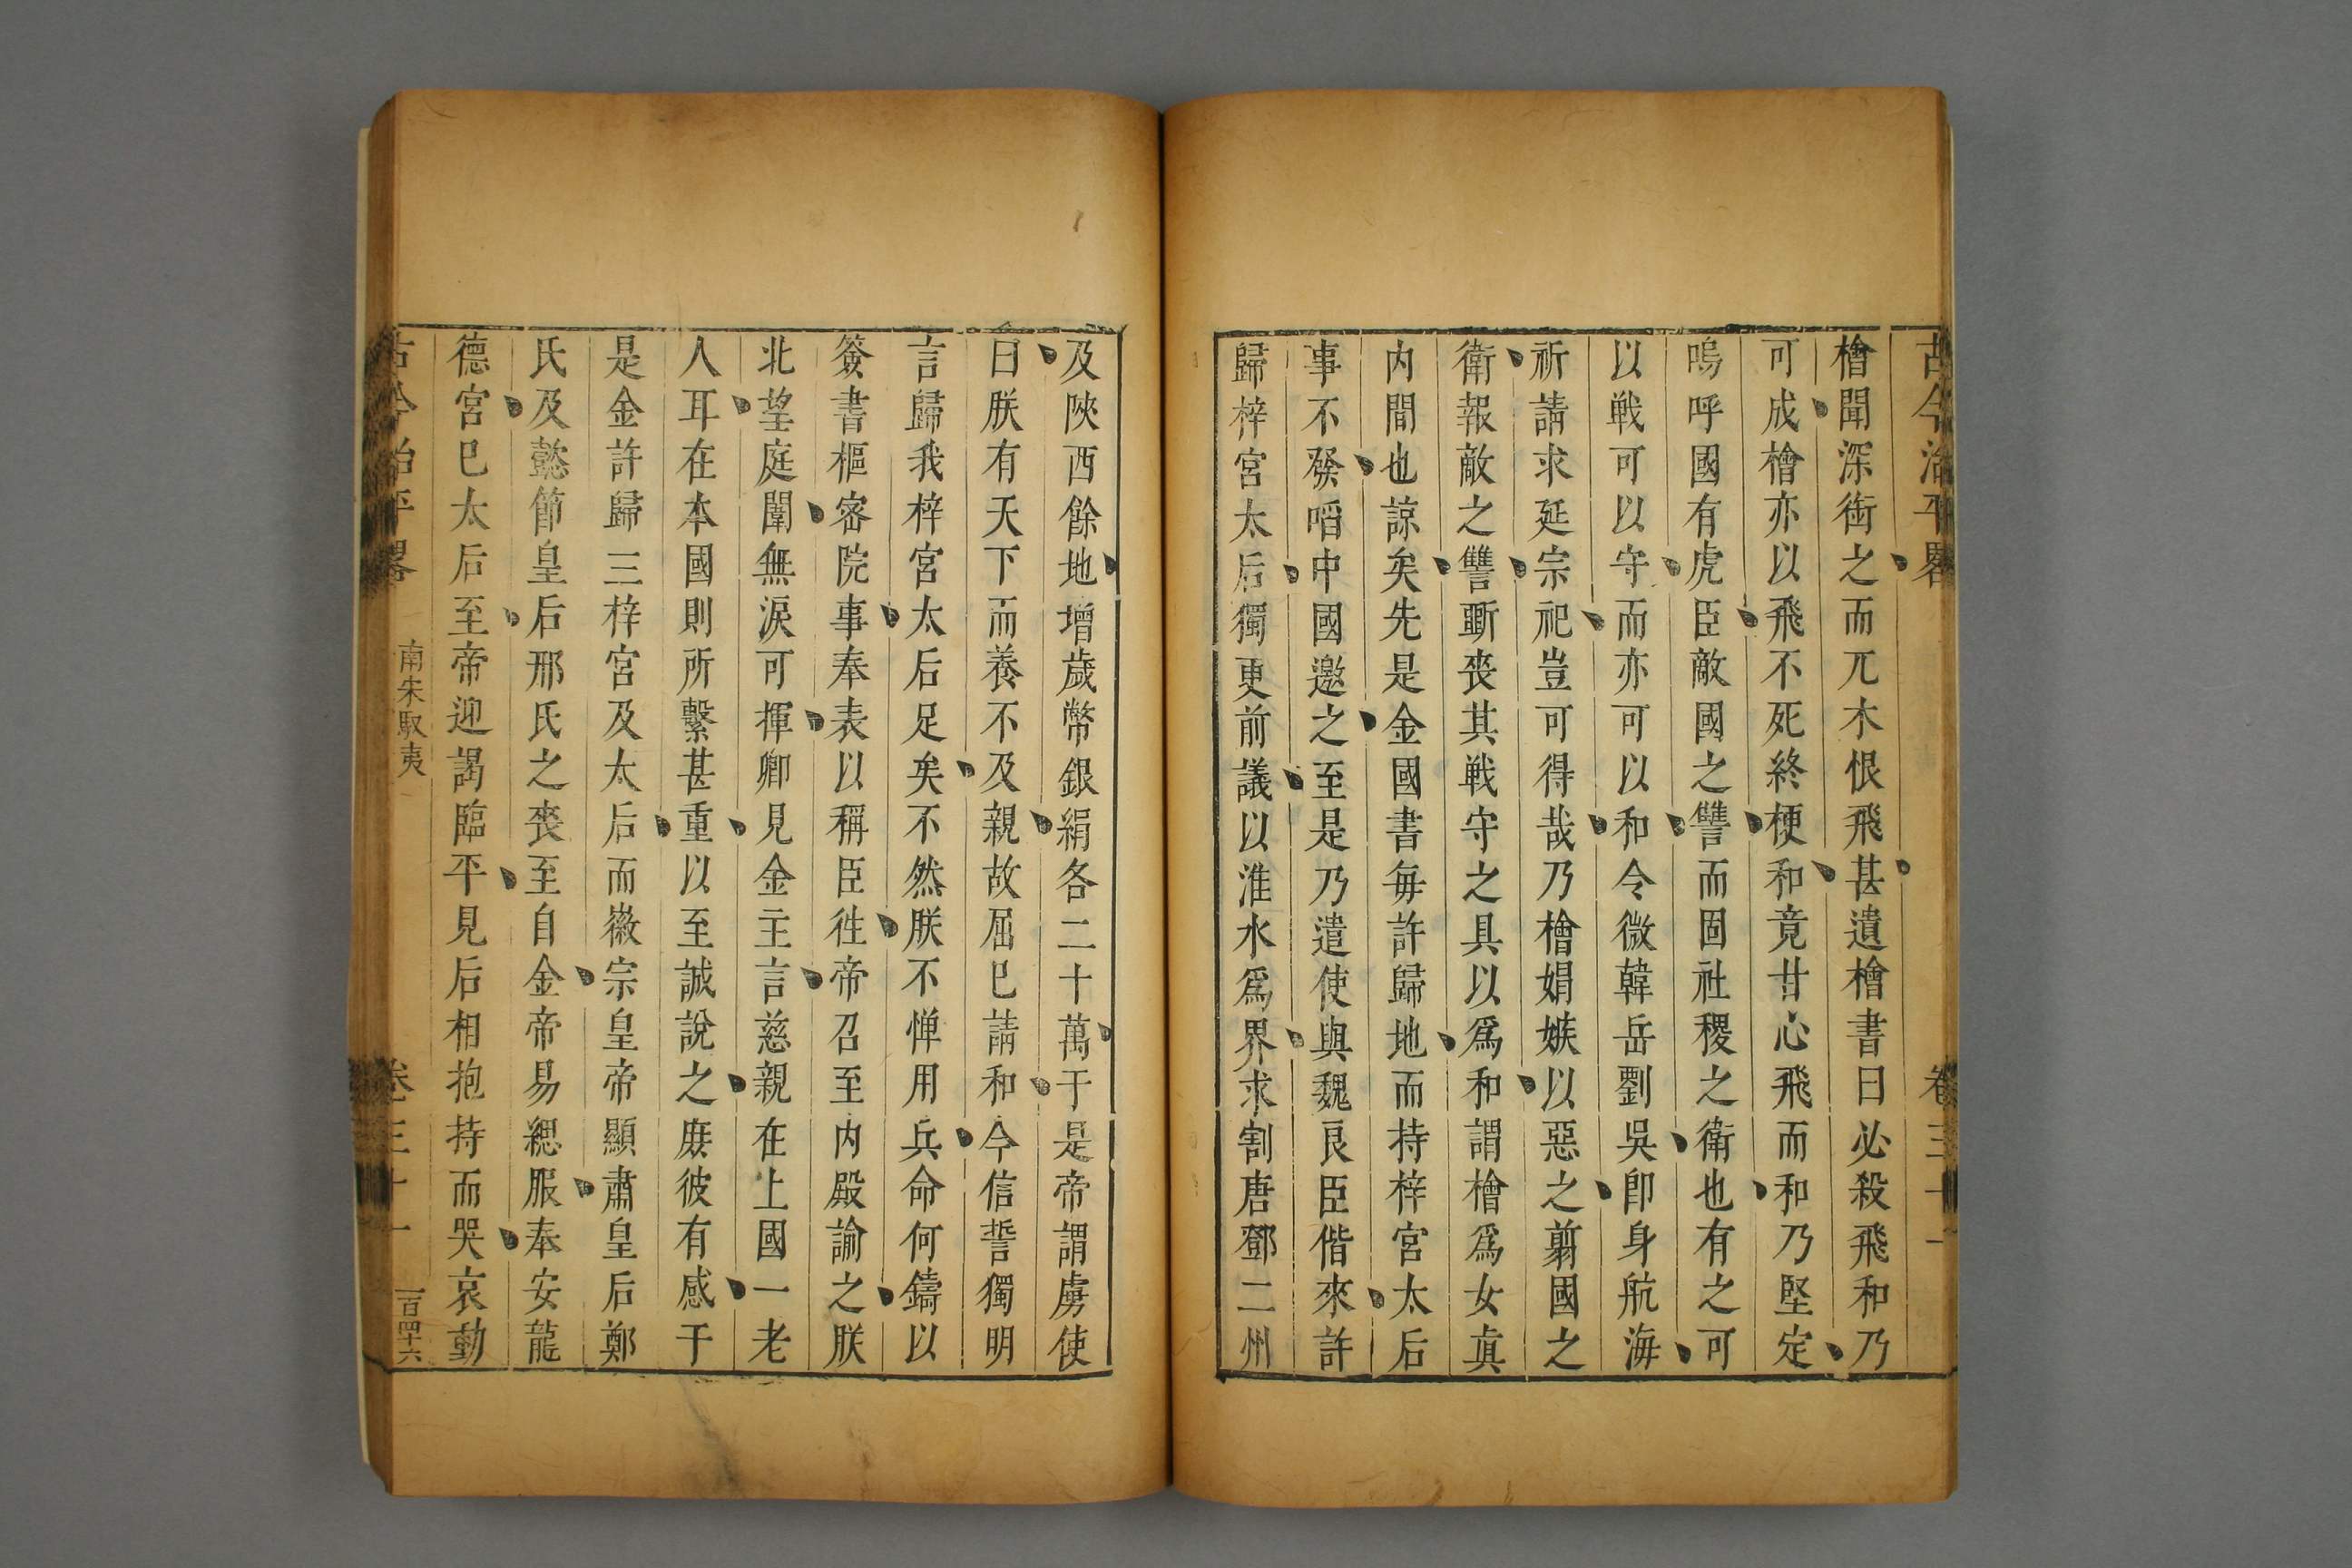 古今治平畧 卷三十一
檜聞深銜之而兀木恨飛甚遺檜書曰必殺飛和乃
可成檜亦以飛不死終梗和竟甘心飛而和乃堅定
嗚呼國有虎臣敵國之讐而固社稷之衛也有之可
以戦可以守而亦可以和令微韓岳劉吳卽身航海
祈請求延宗祀豈可得哉乃檜娟嫉以惡之翦國之
衛報敵之讐斷丧其戦守之具以爲和謂檜爲女真
内間也諒矣先是金國書毎許歸地而持梓宮太后
事不發啗中國邀之至是乃遣使與魏良臣偕來許
歸梓宮太后獨更前議以淮水爲界求割唐鄧二州
及陜西餘地增歲幣銀絹各二十萬于是帝謂虜使
曰朕有天下而養不及親故屈已請和今信誓獨明
言歸我梓宮太后足矣不然朕不憚用兵命何鑄以
簽書樞宻院事奉表以稱臣徃帝召至内殿諭之朕
北望庭闈無淚可揮卿見金主言慈親在上國一老
人耳在本國則所繫甚重以至誠說之庻彼有感于
是金許歸三梓宮及太后而徽宗皇帝顯肅皇后鄭
氏及懿節皇后邢氏之丧至自金帝易緦服奉安龍
德宮巳太后至帝迎謁臨平見后相抱持而哭哀動
古今治平畧 南宋馭夷 卷三十一 一百四十六